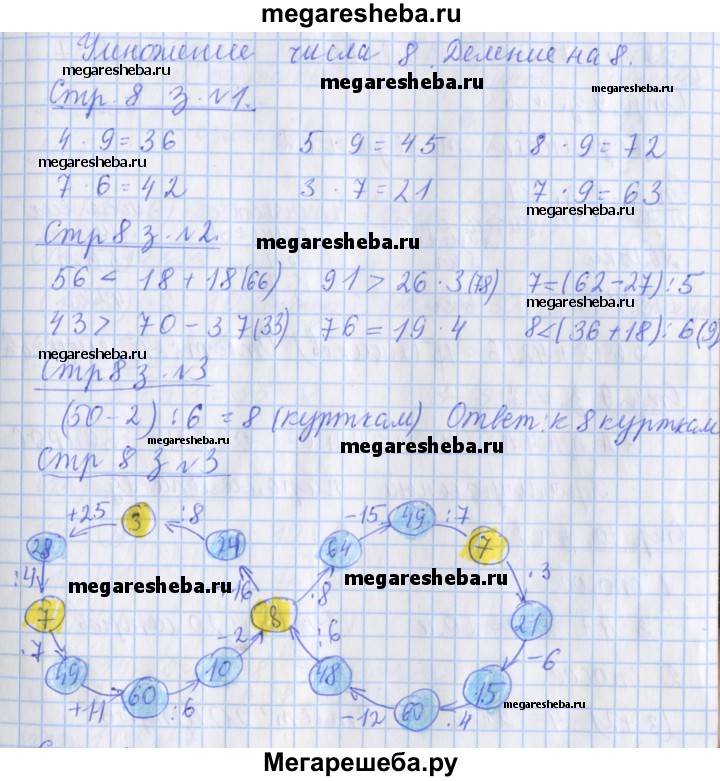 megaresheba.ru
Умножение числа 8. Деление на 8.
megaresheba.ru megaresheba.ru
Стр. 8 з. №1.
megaresheba.ru
4 · 9 = 36 5 · 9 = 45 8 · 9 = 72
megaresheba.ru
7 · 6 = 42 3 · 7 = 21 7 · 9 = 63
megaresheba.ru
Стр 8 з. №2. megaresheba.ru
56 < 18 + 18 (66) 91 > 26 · 3 (78) 7 = (62 - 27) : 5
megaresheba.ru
43 > 70 - 37 (33) 76 = 19 · 4 8 < (36 + 18) : 6 (9)
megaresheba.ru
Стр 8 з. №3
(50 - 2) : 6 = 8 (курткам) Ответ: к 8 курткам
megaresheba.ru megaresheba.ru
Стр 8 з №3
+25 3 :8 -15 49 :7
28 24 64 7
:4 megaresheba.ru +16 megaresheba.ru · 3
7 8 · 8 21
· 7 -2 : 6 -6
49 10 48 15
+11 60 : 6 -12 60 · 4
megaresheba.ru
megaresheba.ru
Мегарешеба.ру